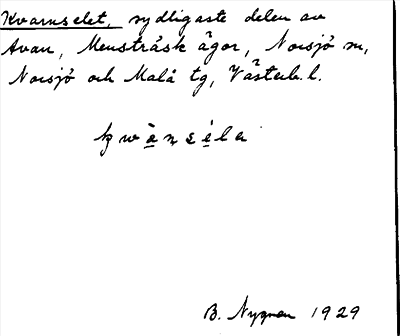 Kvarnselet, sydligaste delen av
Avan, Mensträsk ägor, Norsjö sn,
Norsjö och Malå tg, Västerb. l.
B. Nygren 1929